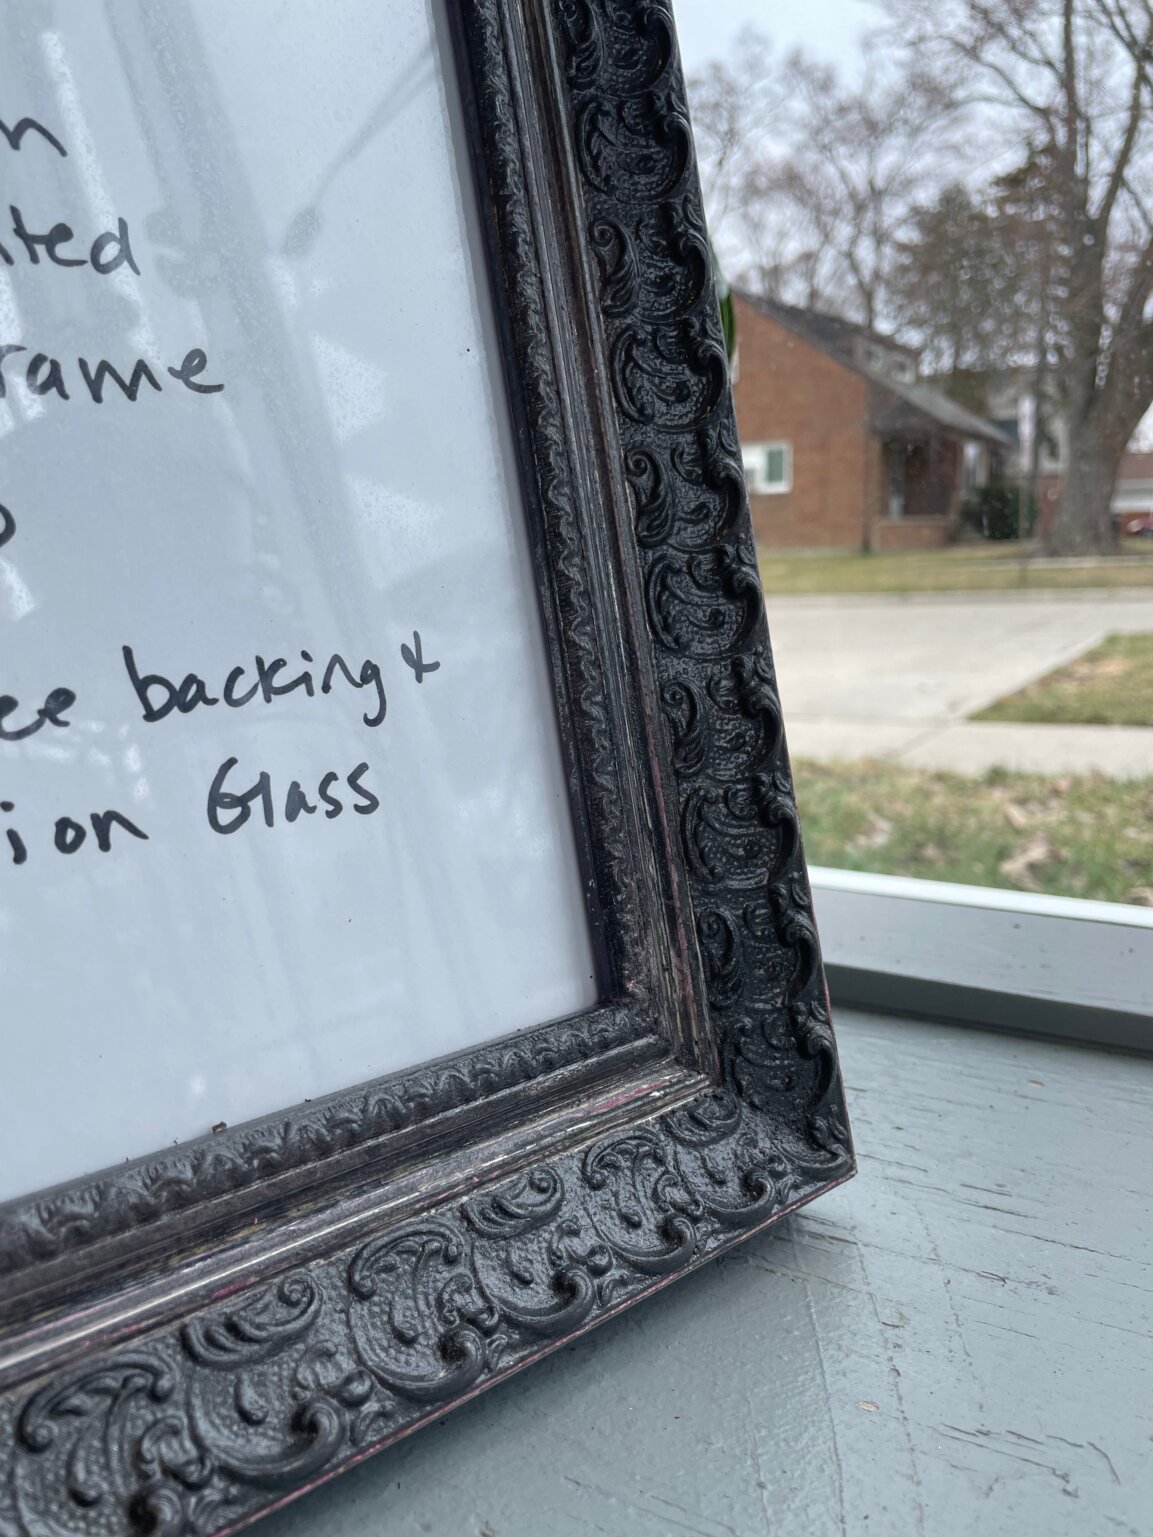 n
ited
rame
ee backing &
ion Glass